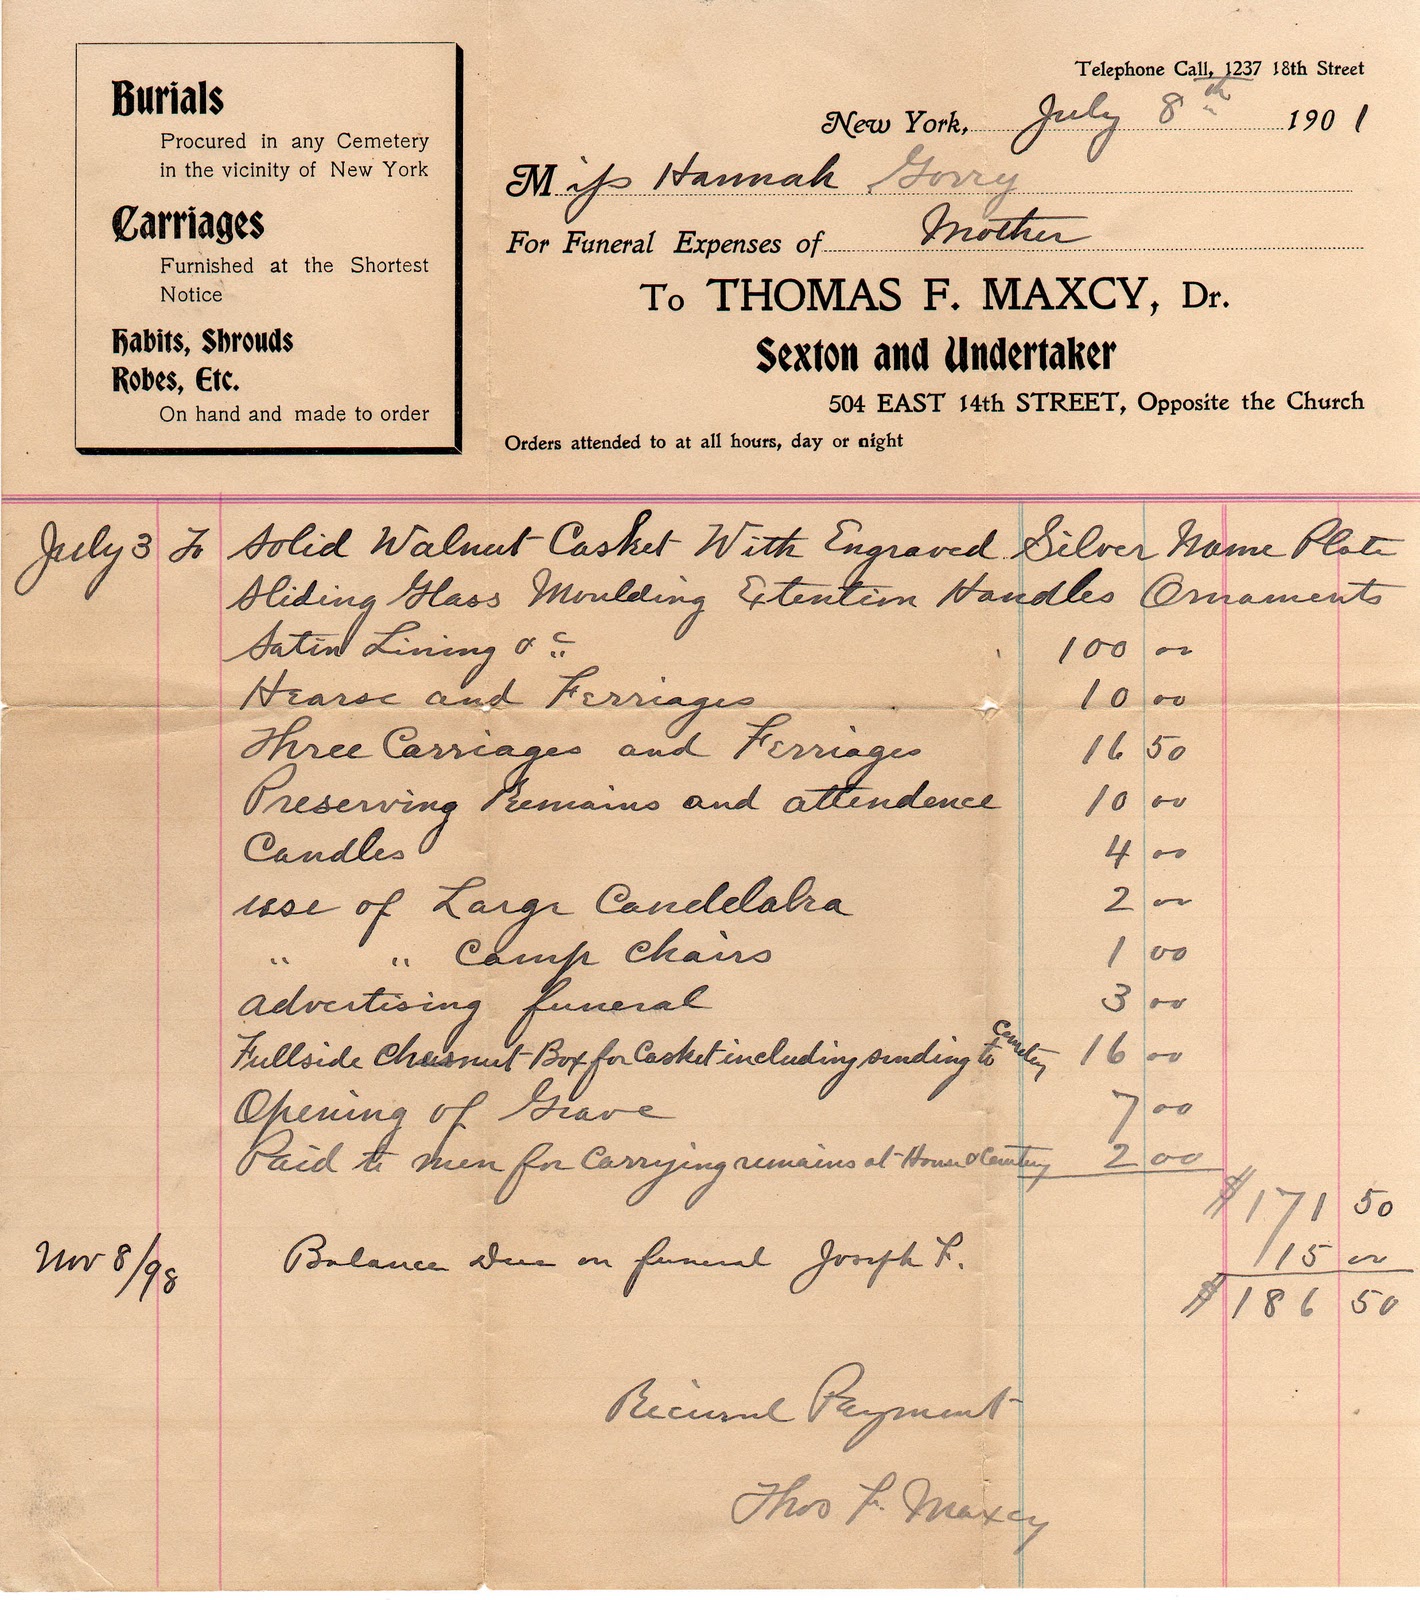 Burials
Procured in any Cemetery
in the vicinity of New York
Carriages
Furnished at the Shortest
Notice
Habits, Shrouds
Robes, Etc.
On hand and made to order
Telephone Call, 1237 18th Street
New York, July 8th 1901
Miss Hannah Gorry
For Funeral Expenses of Mother
To THOMAS F. MAXCY, Dr.
Sexton and Undertaker
504 EAST 14th STREET, Opposite the Church
Orders attended to at all hours, day or night
July 3 To Solid Walnut Casket With Engraved Silver Name Plate
Sliding Glass Moulding Extention Handles Ornaments
Satin Lining &c 100 00
Hearse and Ferriages 10 00
Three Carriages and Ferriages 16 50
Preserving Remains and attendence 10 00
Candles 4 00
use of Large Candelabra 2 00
" " Camp Chairs 1 00
advertising funeral 3 00
Fullside Chesnut Box for Casket including sending to Cemetery 16 00
Opening of Grave 7 00
Paid to men for Carrying remains at House & Cemetery 2 00
$171 50
Nov 8/98 Balance Due on funeral Joseph F. 15 00
$186 50
Received Payment
Thos F. Maxcy